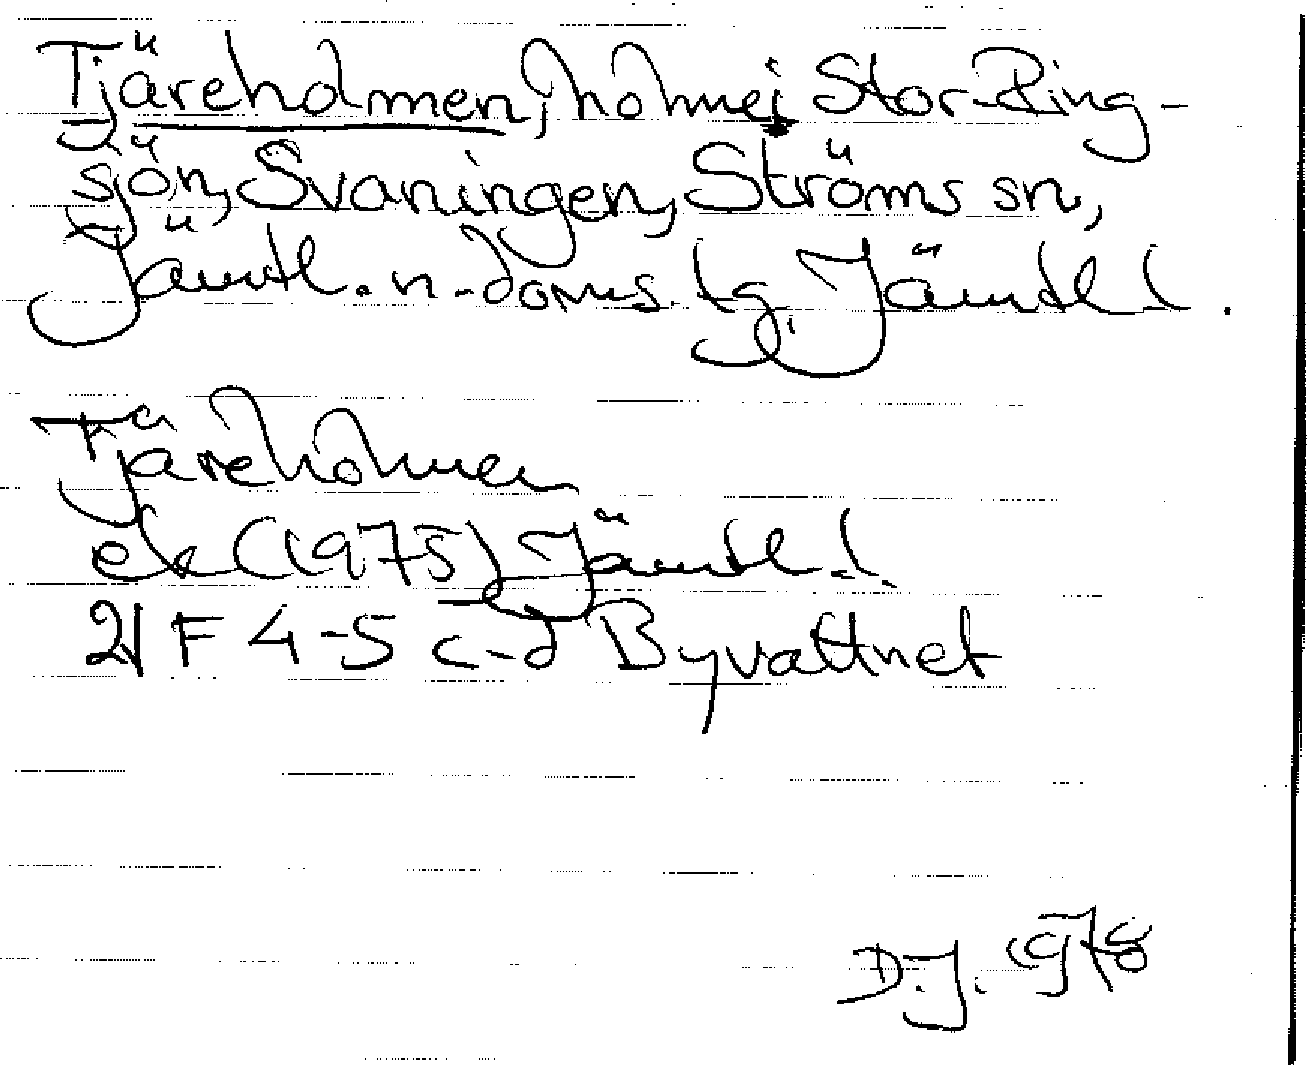 Tjäreholmen, holme i Stor-Ring-
sjön, Svaningen, Ströms sn,
Jämtl. n. doms. tg, Jämtl l.
Tjäreholmen
ek (1975) Jämtl. l.
21 F 4-5 c-d Byvattnet
D.J. 1978